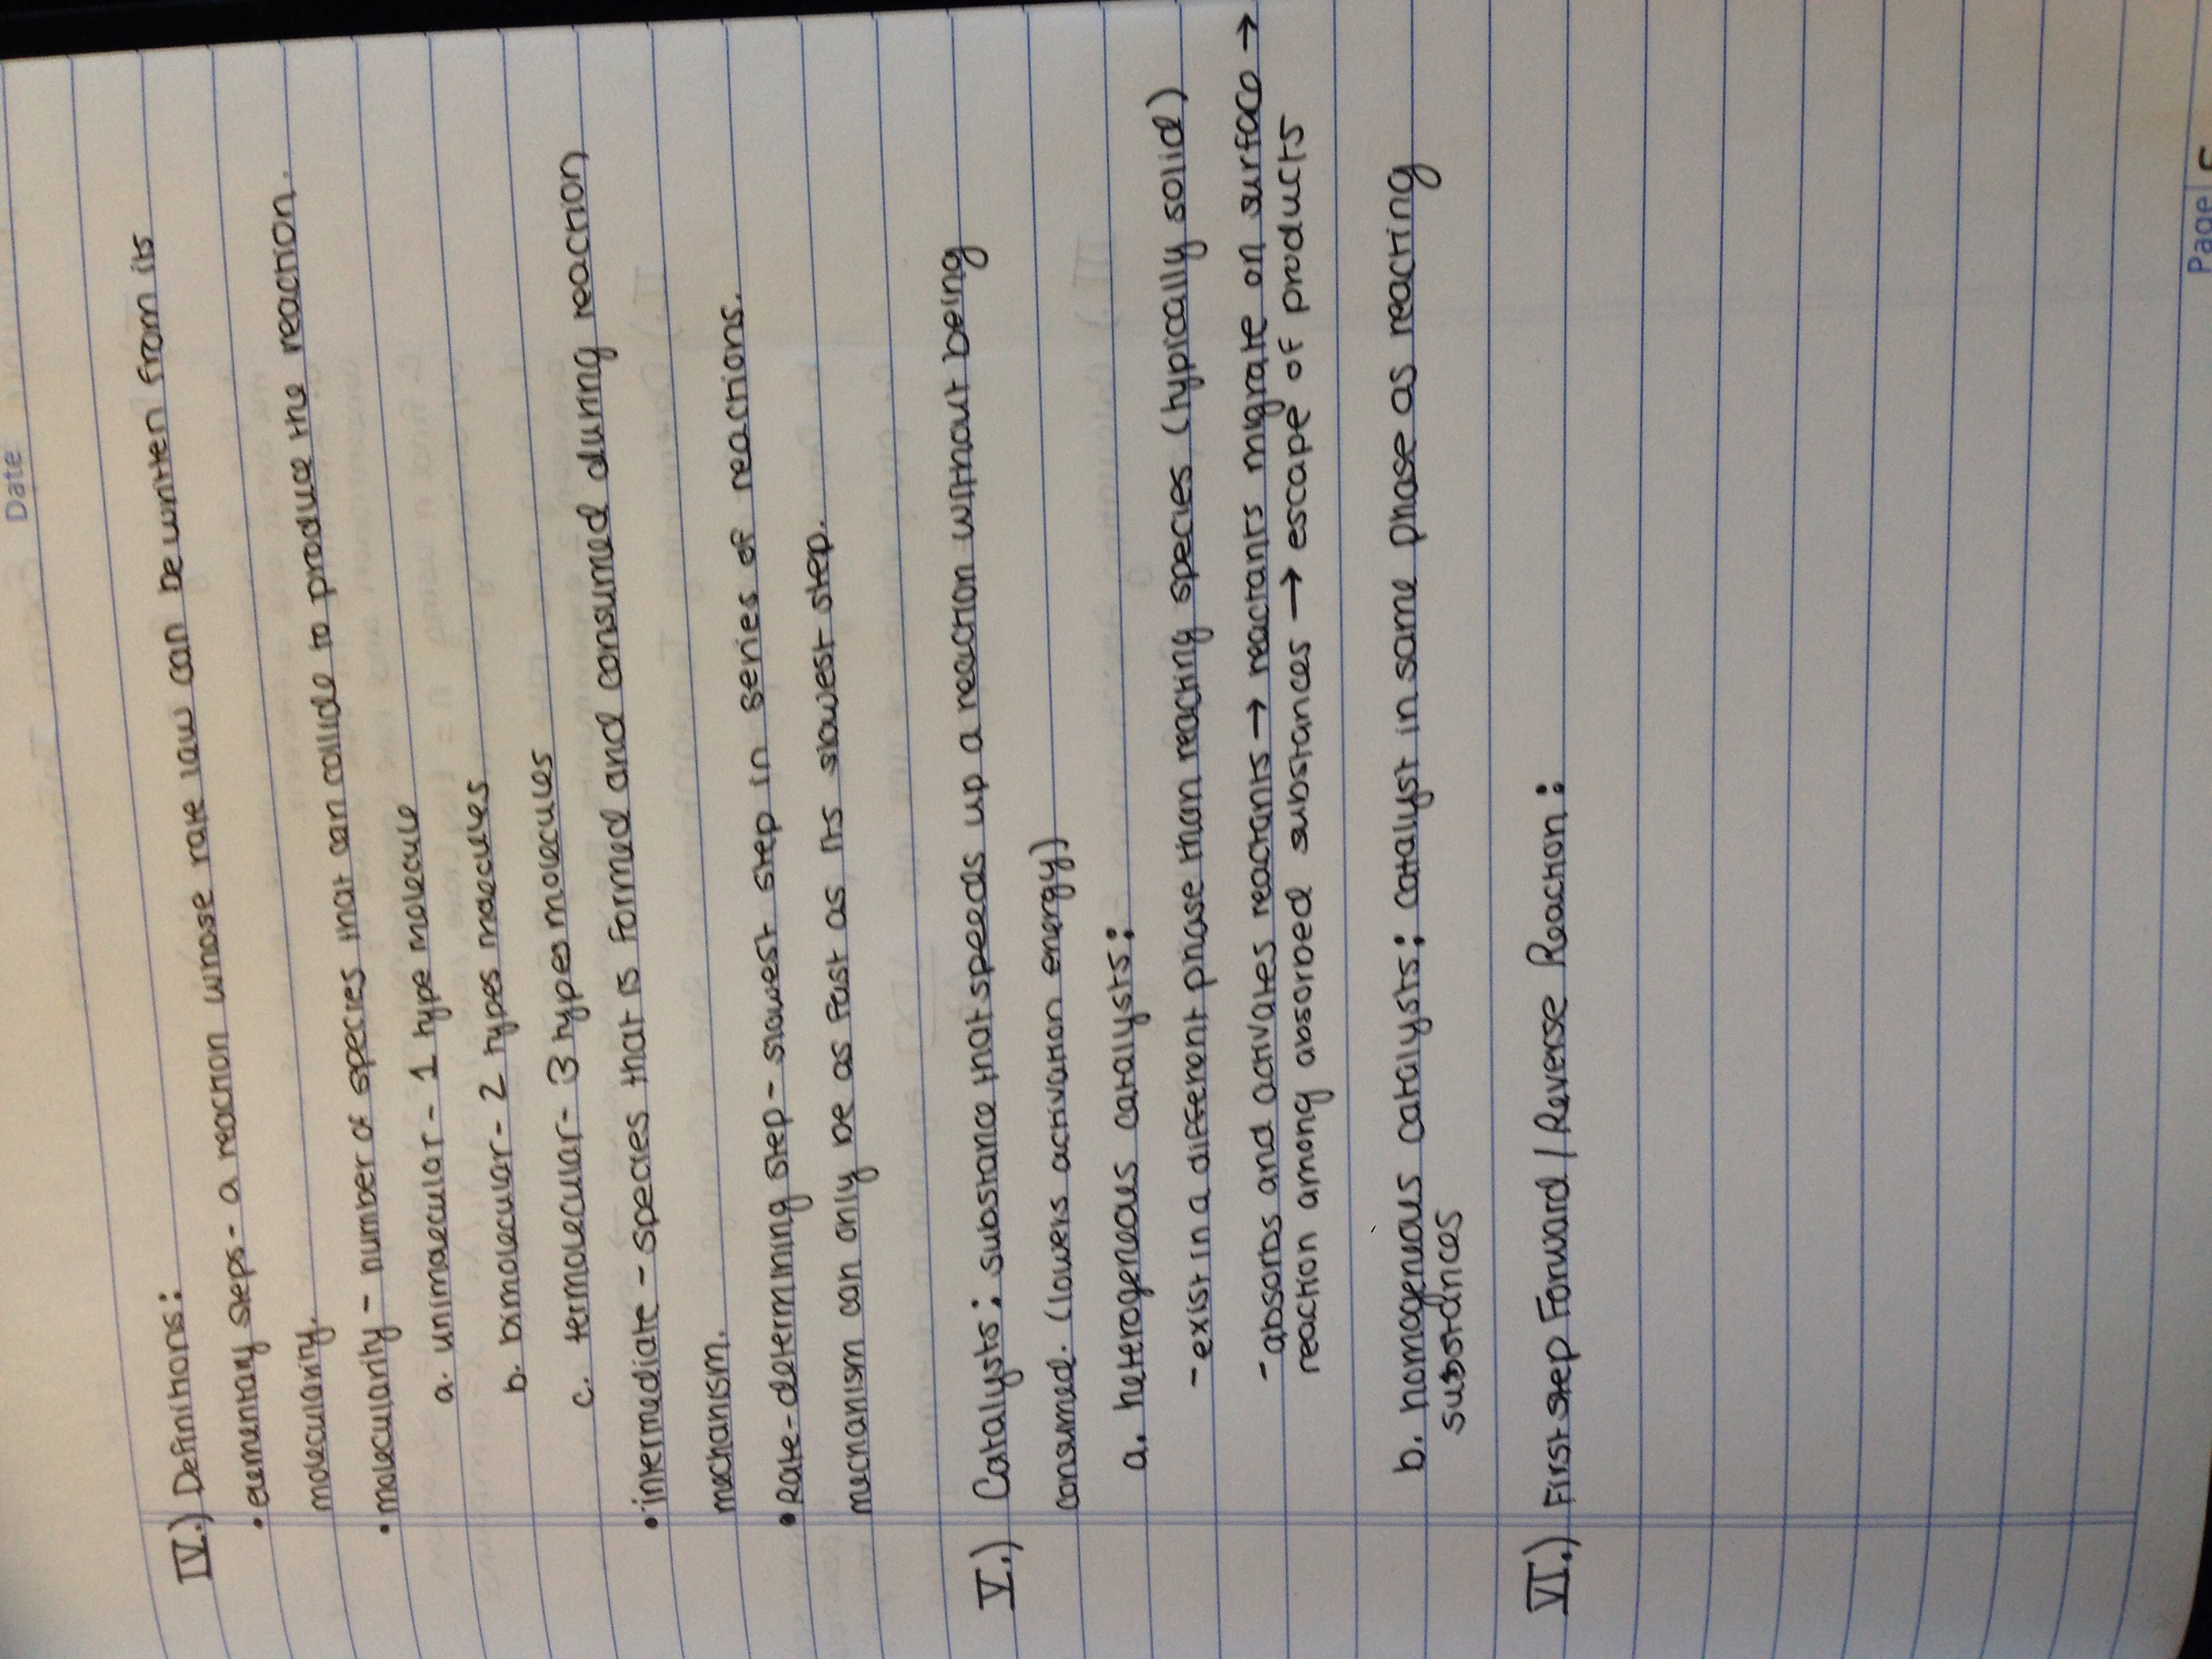 Date
IV.) Definitions:
• elementary steps - a reaction whose rate law can be written from its
molecularity.
• molecularity - number of species that can collide to produce the reaction.
a. unimolecular - 1 type molecule
b. bimolecular - 2 types molecules
c. termolecular - 3 types molecules
• intermediate - species that is formed and consumed during reaction
mechanism.
• Rate-determining step - slowest step in series of reactions.
mechanism can only be as fast as its slowest step.
V.) Catalysts: substance that speeds up a reaction without being
consumed. (lowers activation energy)
a. heterogeneous catalysts:
- exist in a different phase than reacting species (typically solid)
- absorbs and activates reactants → reactants migrate on surface →
reaction among absorbed substances → escape of products
b. homogenuous catalysts: catalyst in same phase as reacting
substances
VI.) First step Forward / Reverse Reaction:
Page